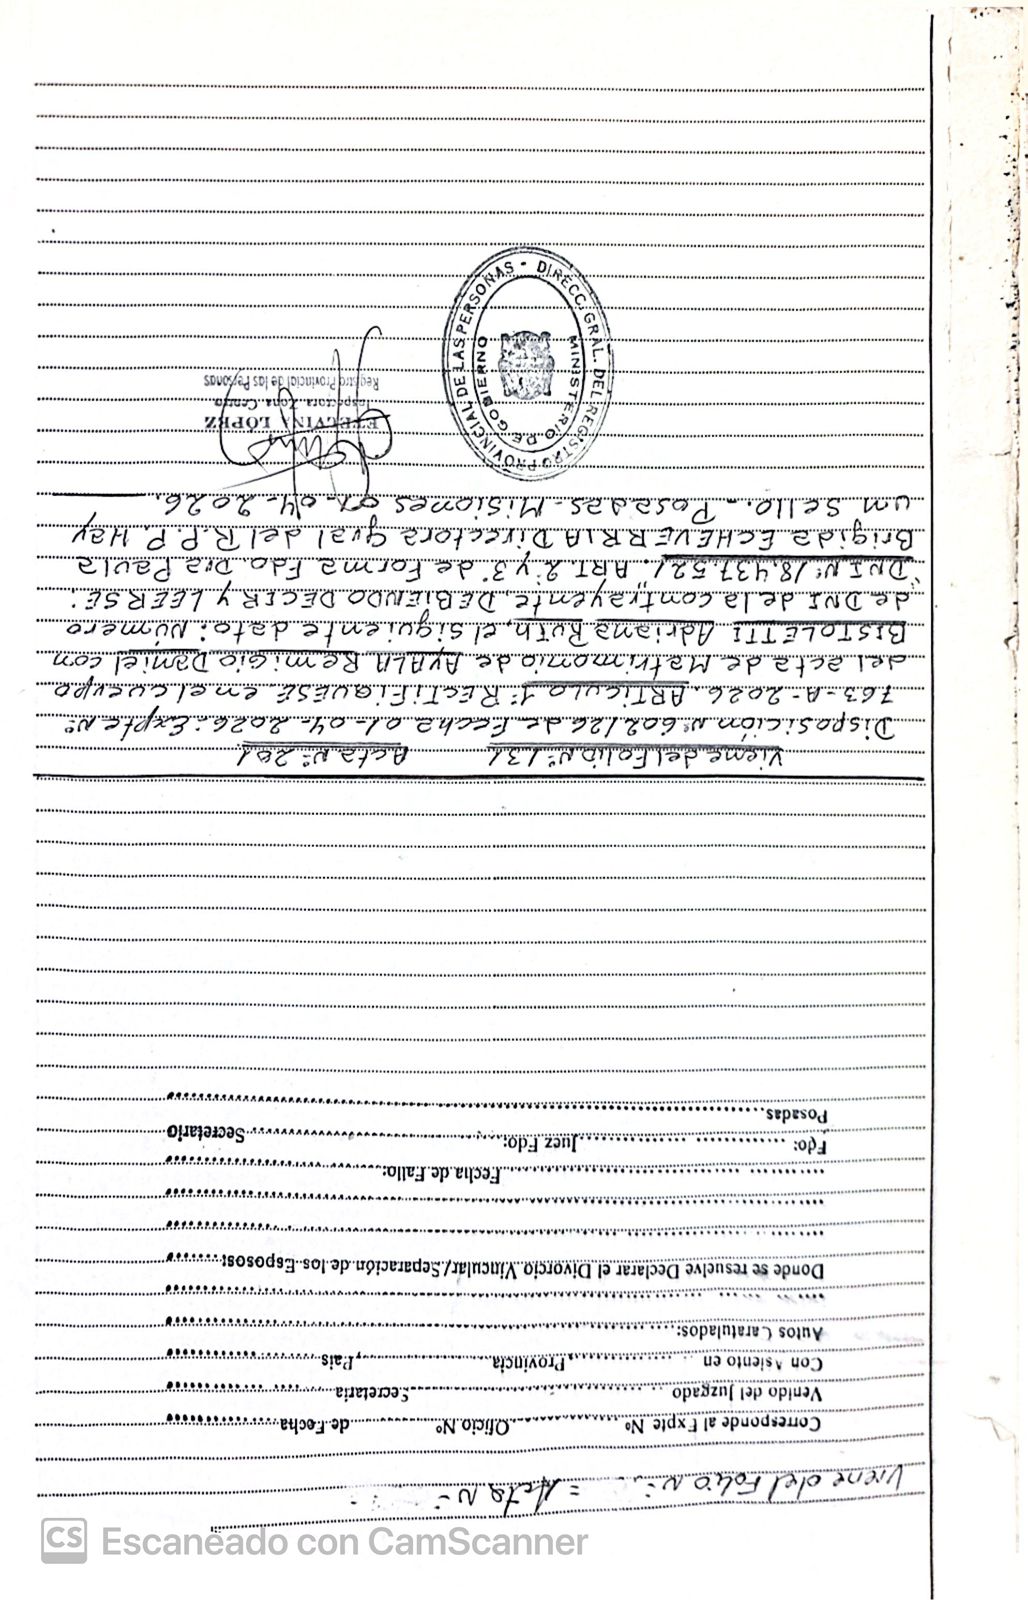 Viene del Folio Nº: = Acta Nº:
Corresponde al Expte Nº.................Oficio Nº.................de Fecha.................
Venido del Juzgado.................Secretaria.................
Con Asiento en.................,Provincia.................,Pais.................
Autos Caratulados:.................
Donde se resuelve Declarar el Divorcio Vincular/Separación de los Esposos:.......
.................Fecha de Fallo:.................
Fdo:.................Juez Fdo:.................Secretario
Posadas.................
Viene del Folio Nº 131 Acta Nº 201
Disposición Nº 602/26 de Fecha 01-04-2026. Expte Nº
763-A-2026. ARTICULO 1º RECTIFIQUESE en el cuerpo
del acta de Matrimonio de AYALA Remigio Daniel con
BISTOLETTI Adriana Ruth, el siguiente dato: Número
de DNI de la contrayente, DEBIENDO DECIR y LEERSE:
"DNI Nº 18.437.521". ART. 2º y 3º de Forma Fdo. Dra Paula
Brigida ECHEVERRIA Directora Gral del R.P.P. Hay
un Sello.- Posadas-Misiones 01-04-2026.
ETELVINA LOPEZ
Inspectora Zona Centro
Registro Provincial de las Personas
DIRECC. GRAL. DEL REGISTRO PROVINCIAL DE LAS PERSONAS -
MINISTERIO DE GOBIERNO
CS Escaneado con CamScanner